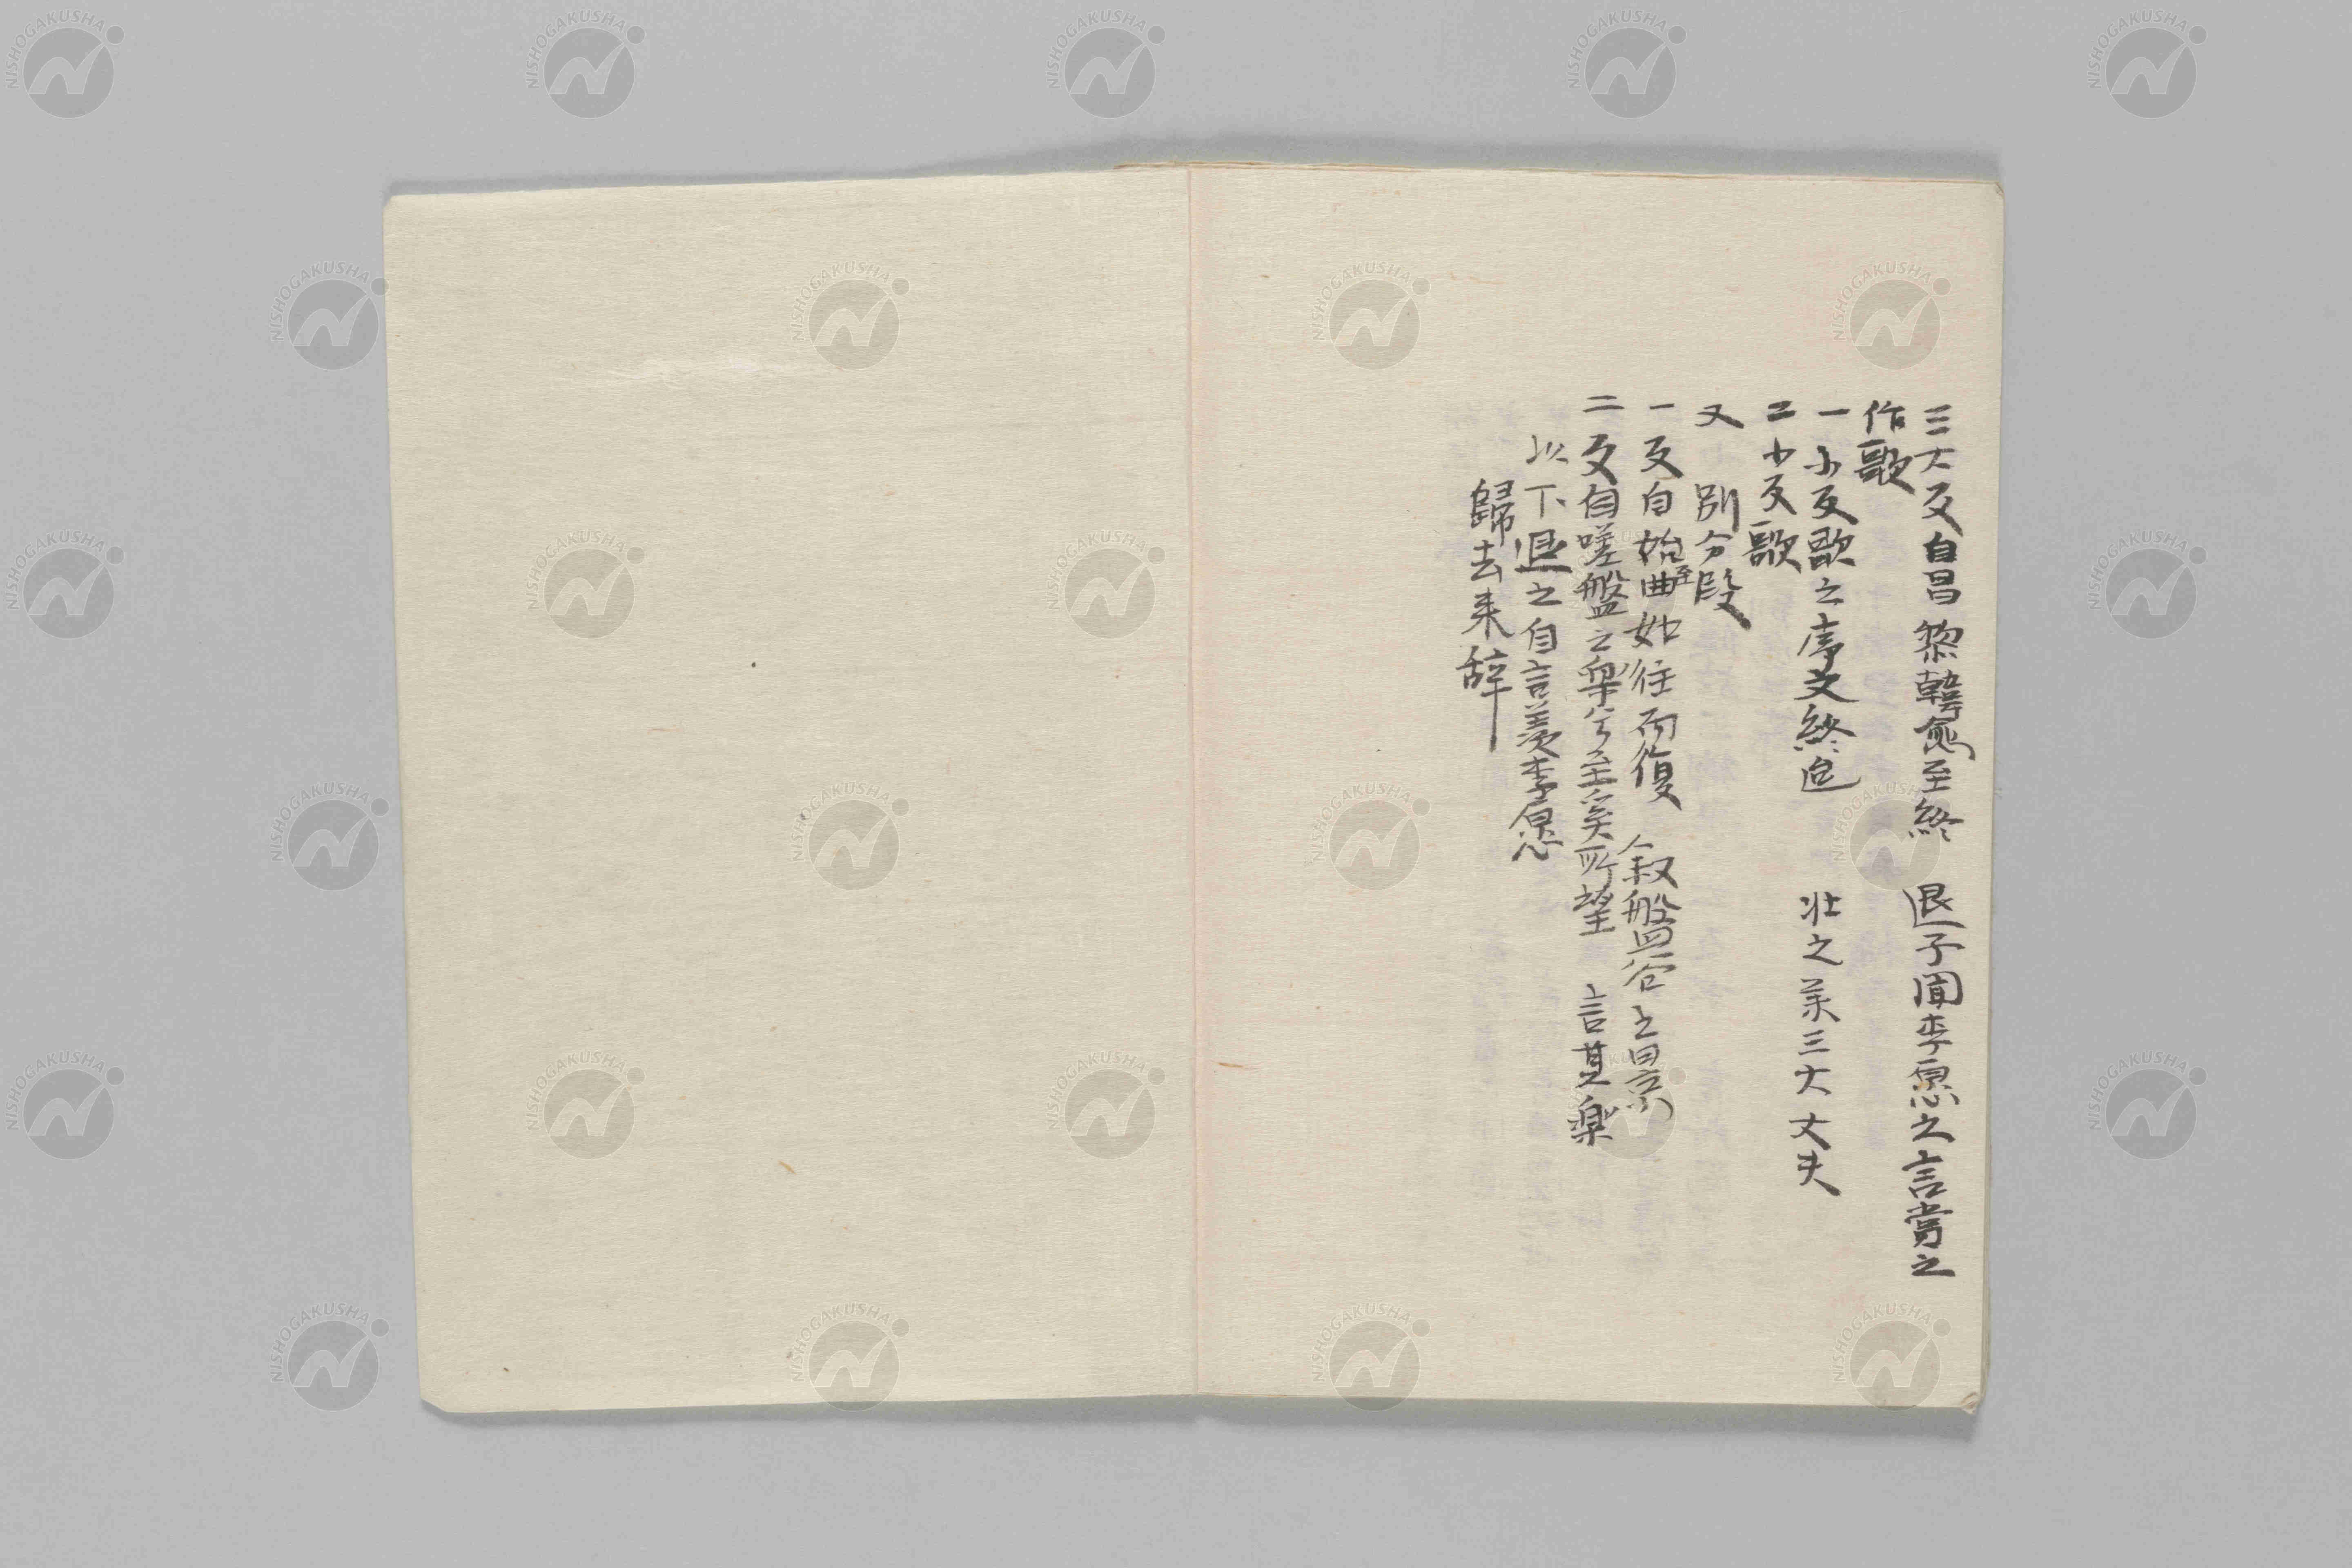 三大段自昌黎韓愈至終　退子聞李愿之言賞之
作歌
一小段歌之序文終迄　壮之美三大丈夫
二小段歌
又　別分段
一段自始至曲如往而復　叙盤谷之景
二段自嗟盤之樂兮至奚所望　言其楽
以下退之自言羨李愿
歸去来辞
NISHOGAKUSHA